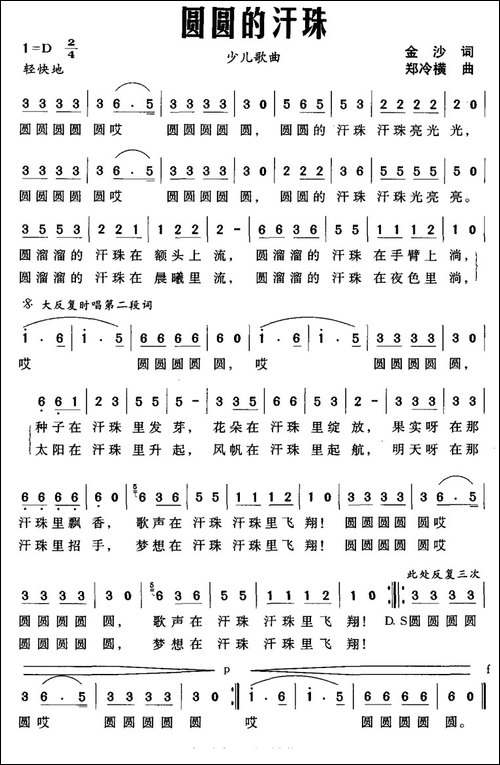 圆圆的汗珠
1=D 2/4
少儿歌曲
金沙 词
轻快地
郑冷横 曲
3 3 3 3 | 3 6. 5 | 3 3 3 3 | 3 0 | 5 6 5 | 5 3 | 2 2 2 2 | 2 0 |
圆圆圆圆 圆哎 圆圆圆圆 圆, 圆圆的 汗珠 汗珠亮光 光,
3 3 3 3 | 3 6. 5 | 3 3 3 3 | 3 0 | 2 2 2 | 3 6 | 5 5 5 5 | 5 0 |
圆圆圆圆 圆哎 圆圆圆圆 圆, 圆圆的 汗珠 汗珠光亮 亮。
3 5 5 3 | 2 2 1 | 1 2 1 | 2 - | 6 6 3 6 | 5 5 3 | 2 3 6 | 5 - |
圆溜溜的 汗珠在 额头上 流, 圆溜溜的 汗珠在 手臂上 淌,
圆溜溜的 汗珠在 晨曦里 流, 圆溜溜的 汗珠在 夜色里 淌,
大反复时唱第二段词
1. 6 | 1. 5 | 6 6 6 6 | 6 0 | 1. 6 | 1. 5 | 3 3 3 3 | 3 0 |
哎 圆圆圆圆 圆, 哎 圆圆圆圆 圆,
6 6 1 | 2 3 | 5 5 3 | 2 - | 2 2 3 | 5 6 | 1 5 2 | 3 - | 3 3 3 3 |
种子在 汗珠 里发 芽, 花朵在 汗珠 里绽 放, 果实呀在那
太阳在 汗珠 里升 起, 风帆在 汗珠 里起 航, 明天呀在那
6 6 6 6 | 6 0 | 6 3 6 | 5 5 | 1 1 1 2 | 1 0 | 3 3 3 3 | 3 6. 5 |
汗珠里飘 香, 歌声在 汗珠 汗珠里飞 翔! 圆圆圆圆 圆哎
汗珠里招 手, 梦想在 汗珠 汗珠里飞 翔! 圆圆圆圆 圆哎
此处反复三次
3 3 3 3 | 3 0 | 6 3 6 | 5 5 | 1 1 1 2 | 1 0 :| 3 3 3 3 |
圆圆圆圆 圆, 歌声在 汗珠 汗珠里飞 翔! D.S 圆圆圆圆
圆圆圆圆 圆, 梦想在 汗珠 汗珠里飞 翔!
p f
3 6. 5 | 3 3 3 3 | 3 0 :| 1. 6 | 1. 5 | 6 6 6 6 | 6 0 |
圆哎 圆圆圆圆 圆 哎 圆圆圆圆 圆。